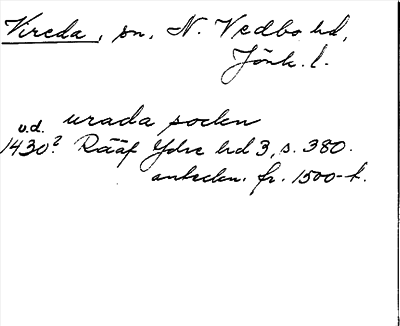 Vireda, sn, N. Vedbo hd,
Jönk. l.
urada sockn
u.d.
1430? Rääf Ydre hd 3, s. 380.
anteckn. fr. 1500-t.